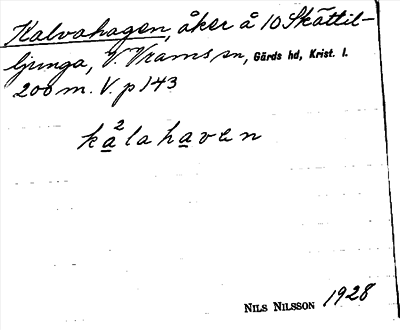 Kalvahagen, åker å 10 Skättil-
ljunga, V. Vrams sn, Gärds hd, Krist. l.
200 m. V. p 143
ka²lahaven
NILS NILSSON 1928